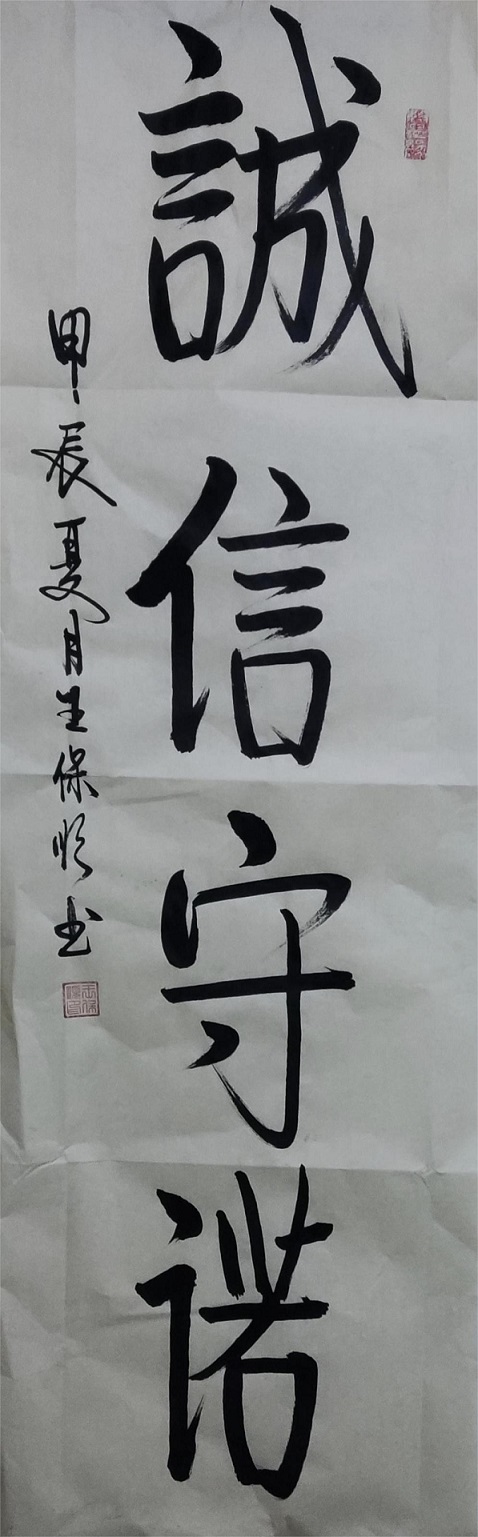 誠信守诺
甲辰夏月王保顺书